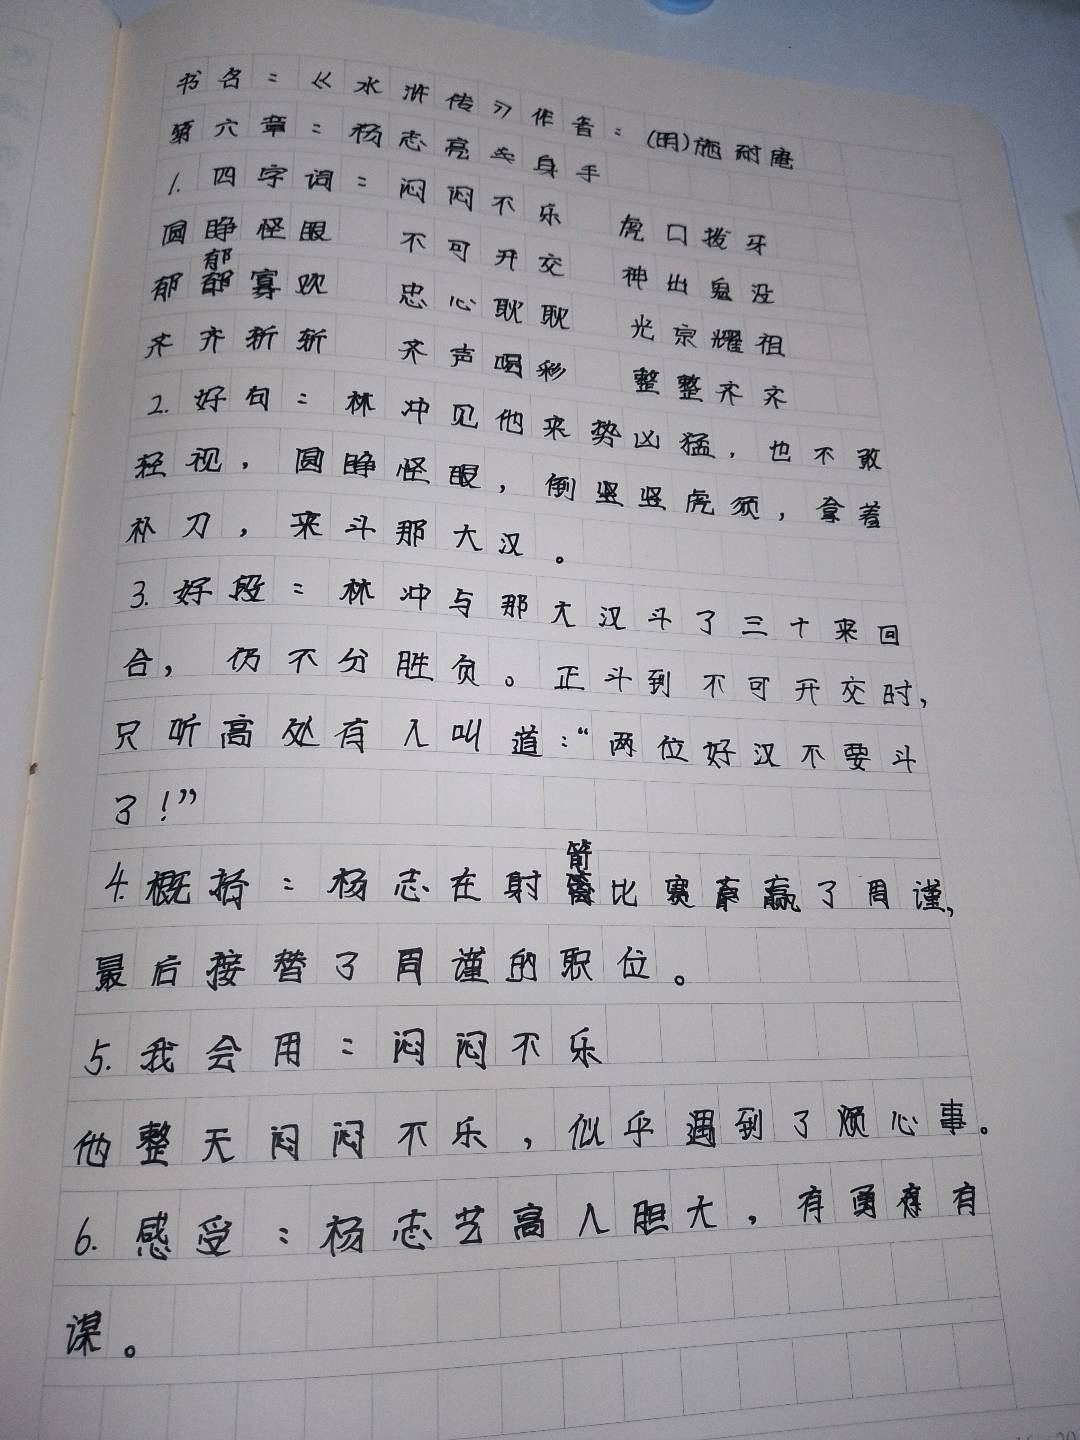 书名：《水浒传》作者：(明)施耐庵
第六章：杨志亮出身手
1.四字词：闷闷不乐 虎口拨牙
圆睁怪眼 不可开交 神出鬼没
郁郁寡欢 忠心耿耿 光宗耀祖
齐齐斩斩 齐声喝彩 整整齐齐
2.好句：林冲见他来势凶猛，也不敢
轻视，圆睁怪眼，倒竖竖虎须，拿着
朴刀，来斗那大汉。
3.好段：林冲与那大汉斗了三十来回
合，仍不分胜负。正斗到不可开交时，
只听高处有人叫道：“两位好汉不要斗
了！”
4.概括：杨志在射箭比赛赢了周谨，
最后接替了周谨的职位。
5.我会用：闷闷不乐
他整天闷闷不乐，似乎遇到了烦心事。
6.感受：杨志艺高人胆大，有勇有
谋。